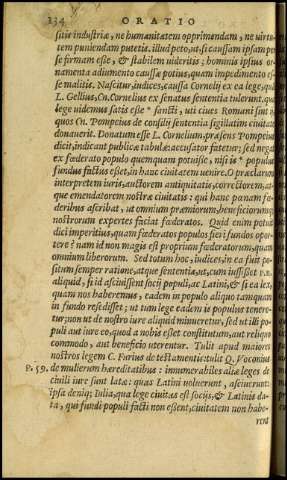 234 ORATIO
sitis industriæ, ne humanitatem opprimendam, ne uirtu-
tem puniendam putetis. illud peto, ut, si caussam ipsam per
se firmam esse, & stabilem uideritis; hominis ipsius or-
namenta adiumento caussæ potius, quam impedimento es-
se malitis. Nascitur, iudices, caussa Cornelij ex ea lege, quã
L. Gellius, Cn. Cornelius ex senatus sententia tulerunt. qua
lege uidemus satis esse * sanctũ, uti ciues Romani sint ij,
quos Cn. Pompeius de consilij sententia sigillatim ciuitate
donauerit. Donatum esse L. Cornelium, præsens Pompeius
dicit, indicant publicæ tabulæ. accusator fatetur; sed negat
ex fœderato populo quemquam potuisse, nisi is * populus
fundus factus esset, in hanc ciuitatem uenire. O præclarum
interpretem iuris, auctorem antiquitatis, correctorem, at-
que emendatorem nostræ ciuitatis: qui hanc pœnam fœ-
deribus ascribat, ut omnium præmiorum, beneficiorumq;
nostrorum expertes faciat fœderatos. Quid enim potuit
dici imperitius, quam fœderatos populos fieri fundos opor-
tere? nam id non magis est proprium fœderatorum, quam
omnium liberorum. Sed totum hoc, iudices, in ea fuit po-
situm semper ratione, atque sententia, ut, cum iussisset P. R.
aliquid, si id asciuissent socij populi, ac Latini, & si ea lex,
quam nos haberemus, eadem in populo aliquo tamquam
in fundo resedisset; ut tum lege eadem is populus tenere-
tur; non ut de nostro iure aliquid minueretur, sed ut illi po-
puli aut iure eo, quod a nobis esset constitutum, aut reliquo
commodo, aut beneficio uterentur. Tulit apud maiores
nostros legem C. Furius de testamentis: tulit Q. Voconius
P. 59. de mulierum hæreditatibus: innumerabiles aliæ leges de
ciuili iure sunt latæ: quas Latini uoluerunt, asciuerunt:
ipsa deniq; Iulia, qua lege ciuitas est socijs, & Latinis da-
ta, qui fundi populi facti non essent, ciuitatem non habe-
rent